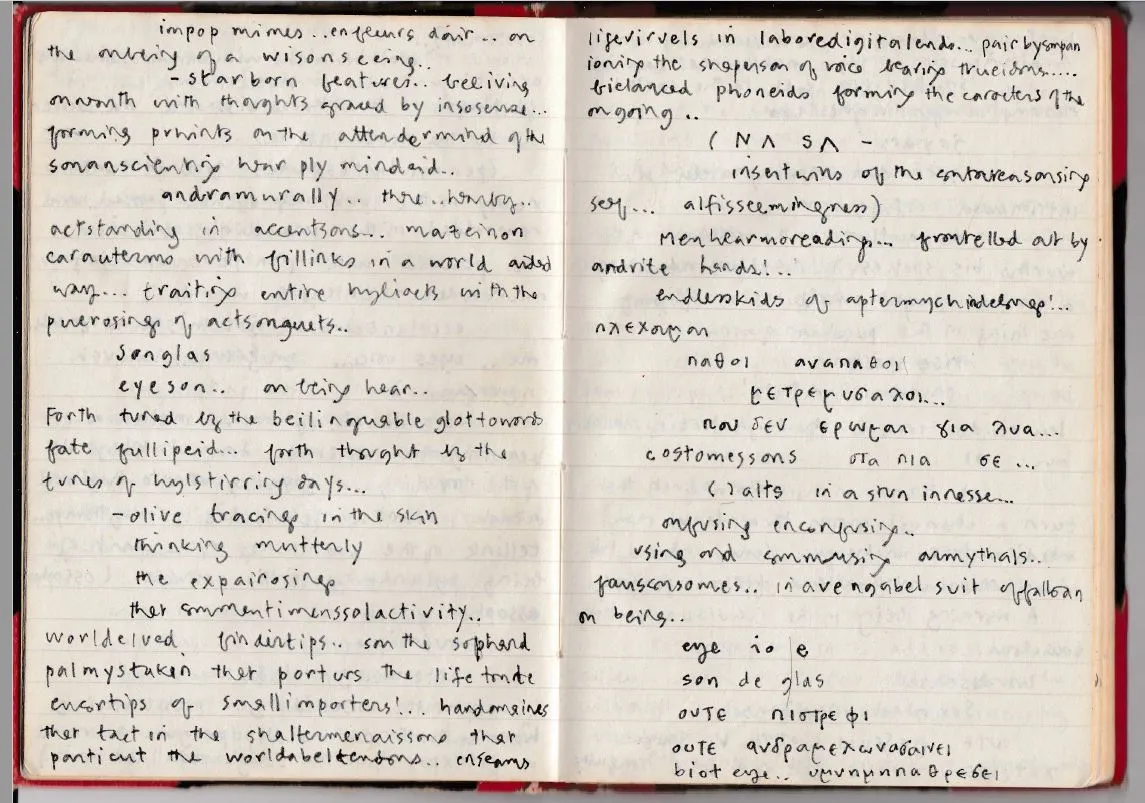 impop mimes.. enfleurs dair.. on
the onbeing of a wisonseeing..
- starborn features.. beeliving
onwarth with thoughts graced by insosense...
forming prhints on the attendermind of the
sonanscienting hear ply mindeid..
andramurally.. thre..hearby...
actstanding in accentsons... mazeinon
carautermo with fillinks in a world aided
way... traiting entire hyliacts with the
puerosings of actsonguets..
Songlas
eyeson... on being hear..
Forth tuned by the beilinguable glottowords
fate fullipeid... forth thought by the
tunes of hylstirring days...
-olive tracings in the skin
thinking mutterly
the expairosings
that commentimenssolactivity..
worldelved findertips.. son the sophand
palmystaken that porturs the life tonte
encortips of smallimporters!.. handmaines
that tact in the shaltermenaissons that
particut the worldabeltendons.. enseams
lifevirvels in laboredigitalends... pair bysonpan
ioning the shaperson of voice bearing trueidms.....
bielanced phoneids forming the caracters of the
ongoing..
( N Λ S Λ -
insertwins of the contareasonsing
self... alfisseemingness)
Menhearmoreadings... frontelled out by
andrite heads!..
endlesskids of aptermychindelongs!...
πλεχομαι
παθοι αναπαθοι
μετρεμυσαλοι...
που δεν ερωμαι για λυα...
costomessons στα πια σε ...
( ) alts in a stun innesse...
onfusing enconfusing..
using and communsing armythals..
fansconsomes.. in avengabel suit offalloan
on being..
eye io e
son de glas
ουτε πιστρεφι
ουτε ανδραμεχωνασαινει
biot eye.. υμνημηπαθρεσει